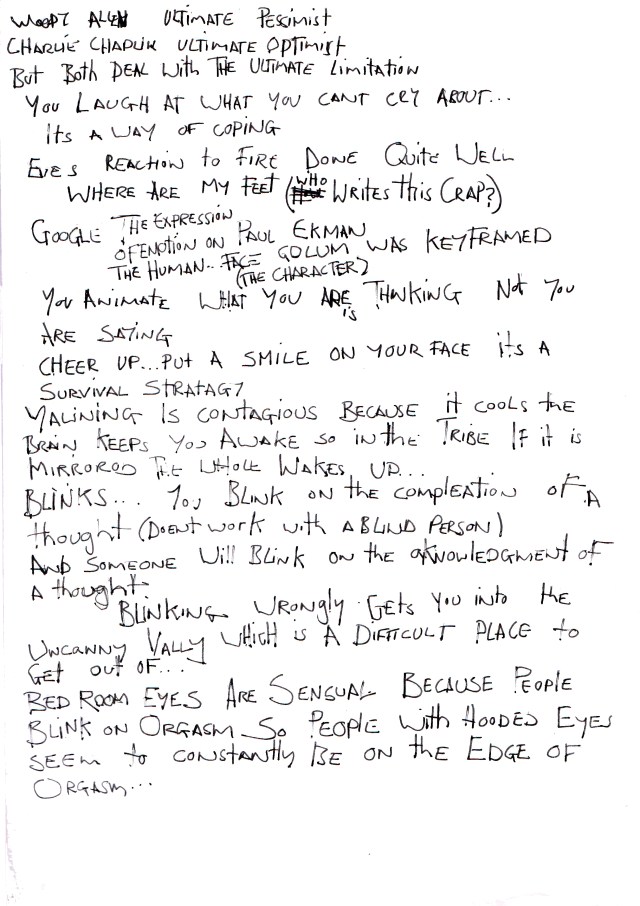 WOODY ALLEN ULTIMATE PESSIMIST
CHARLIE CHAPLIN ULTIMATE OPTIMIST
BUT BOTH DEAL WITH THE ULTIMATE LIMITATION
YOU LAUGH AT WHAT YOU CANT CRY ABOUT...
ITS A WAY OF COPING
EVES REACTION TO FIRE DONE QUITE WELL
WHERE ARE MY FEET (WHO WRITES THIS CRAP?)
GOOGLE THE EXPRESSION OF EMOTION ON THE HUMAN.. FACE PAUL EKMAN
GOLUM (THE CHARACTER) WAS KEYFRAMED
YOU ANIMATE WHAT YOU ARE THINKING NOT YOU
is
ARE SAYING
CHEER UP...PUT A SMILE ON YOUR FACE ITS A
SURVIVAL STRATAGY
YALINING IS CONTAGIOUS BECAUSE IT COOLS THE
BRAIN KEEPS YOU AWAKE SO IN THE TRIBE IF IT IS
MIRRORED THE WHOLE WAKES UP...
BLINKS... YOU BLINK ON THE COMPLEATION OF A
THOUGHT (DOENT WORK WITH A BLIND PERSON)
AND SOMEONE WILL BLINK ON THE AKNOWLEDGMENT OF
A THOUGHT.
BLINKING WRONGLY GETS YOU INTO THE
UNCANNY VALLY WHICH IS A DIFFICULT PLACE TO
GET OUT OF...
BED ROOM EYES ARE SENSUAL BECAUSE PEOPLE
BLINK ON ORGASM SO PEOPLE WITH HOODED EYES
SEEM TO CONSTANTLY BE ON THE EDGE OF
ORGASM...